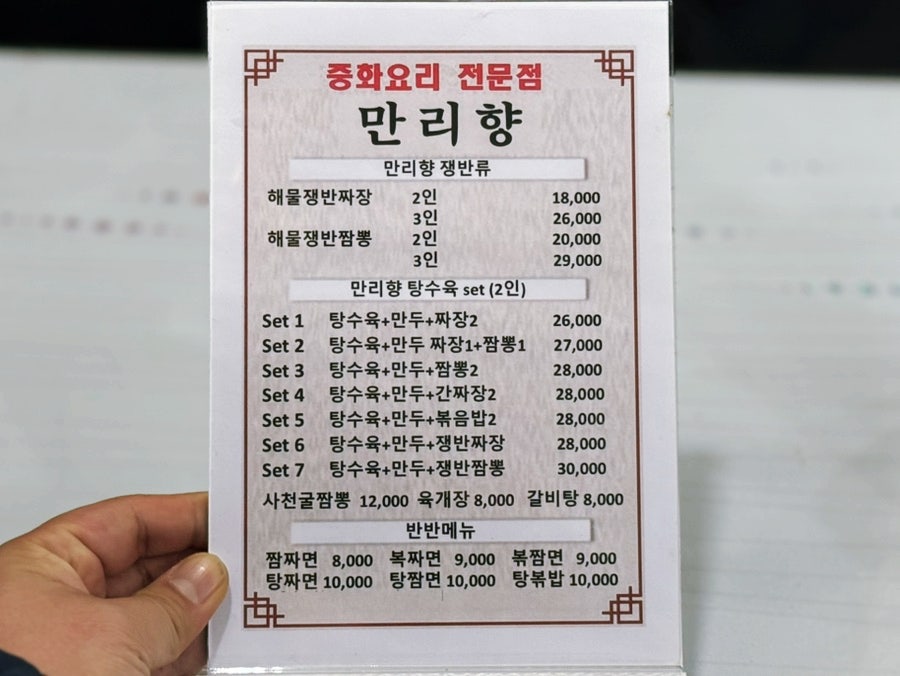 중화요리 전문점
만리향
만리향 쟁반류
해물쟁반짜장 2인 18,000
3인 26,000
해물쟁반짬뽕 2인 20,000
3인 29,000
만리향 탕수육 set (2인)
Set 1 탕수육+만두+짜장2 26,000
Set 2 탕수육+만두 짜장1+짬뽕1 27,000
Set 3 탕수육+만두+짬뽕2 28,000
Set 4 탕수육+만두+간짜장2 28,000
Set 5 탕수육+만두+볶음밥2 28,000
Set 6 탕수육+만두+쟁반짜장 28,000
Set 7 탕수육+만두+쟁반짬뽕 30,000
사천굴짬뽕 12,000 육개장 8,000 갈비탕 8,000
반반메뉴
짬짜면 8,000 복짜면 9,000 볶짬면 9,000
탕짜면 10,000 탕짬면 10,000 탕볶밥 10,000